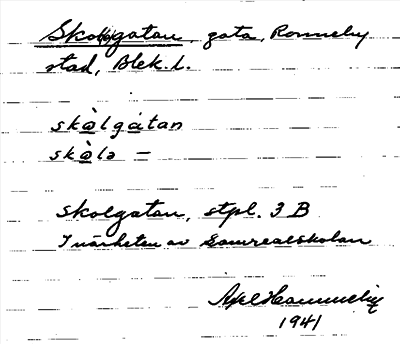 Skol(e)gatan, gata, Ronneby
stad, Blek. l.
skòlgátan
skòlə —
Skolgatan, stpl. 3 B
I närheten av Samrealskolan
Axel
1941